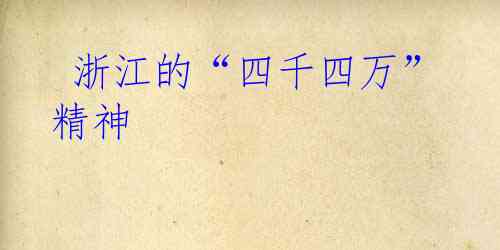 浙江的“四千四万”
精神